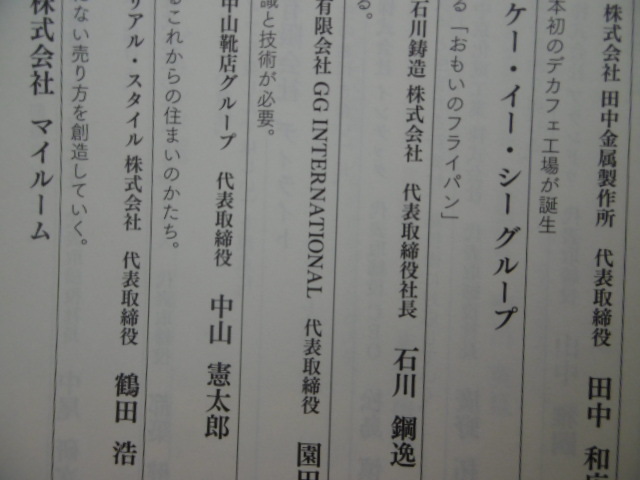 株式会社 田中金属製作所 代表取締役 田中 和
本初のデカフェ工場が誕生
ケー・イー・シーグループ
る「おもいのフライパン」
石川鋳造 株式会社 代表取締役社長 石川 鋼逸
る。
有限会社 GG INTERNATIONAL 代表取締役 園田
識と技術が必要。
中山靴店グループ 代表取締役 中山 憲太郎
るこれからの住まいのかたち。
リアル・スタイル 株式会社 代表取締役 鶴田 浩
ない売り方を創造していく。
株式会社 マイルーム